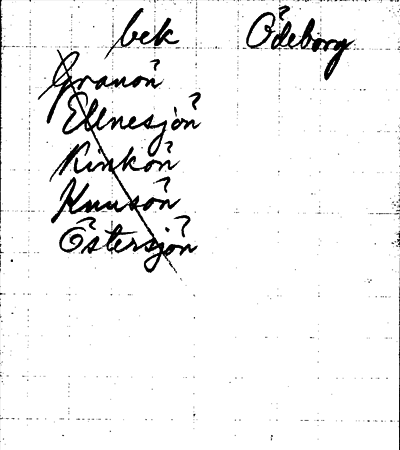 bek Ödeborg
Granön
Ellnesjön
Kinkön
Knusön
Östersjön